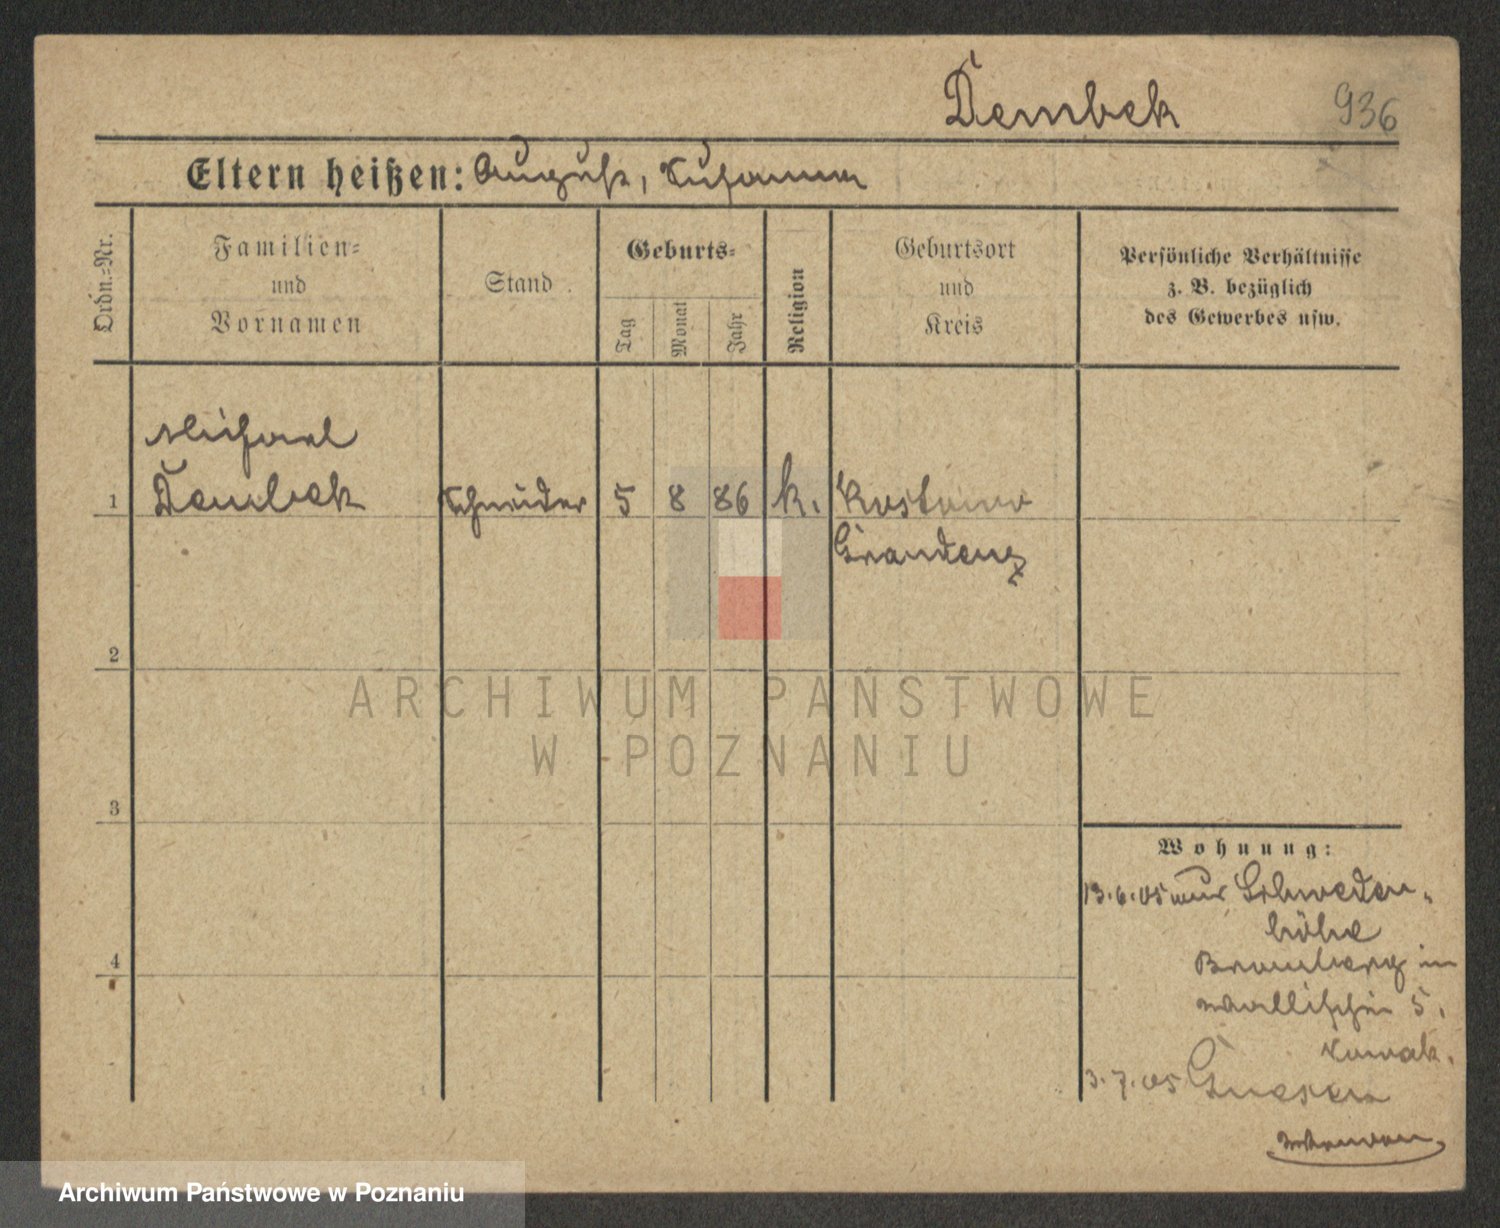 Dembek
936
Eltern heißen: August, Susanna
Ordn.-Nr.
Familien-
und
Vornamen
Stand
Geburts-
Tag
Monat
Jahr
Religion
Geburtsort
und
Kreis
Persönliche Verhältnisse
z. B. bezüglich
des Gewerbes usw.
Michael
1 Dembek Schneider 5 8 86 k.
Graudenz
2
ARCHIWUM PAŃSTWOWE
W POZNANIU
3
Wohnung:
13.6.05 aus Schweden-
höhe
Bromberg in
Wallischei 5.
Nowak.
3.7.05 Gnesen
Archiwum Państwowe w Poznaniu
4